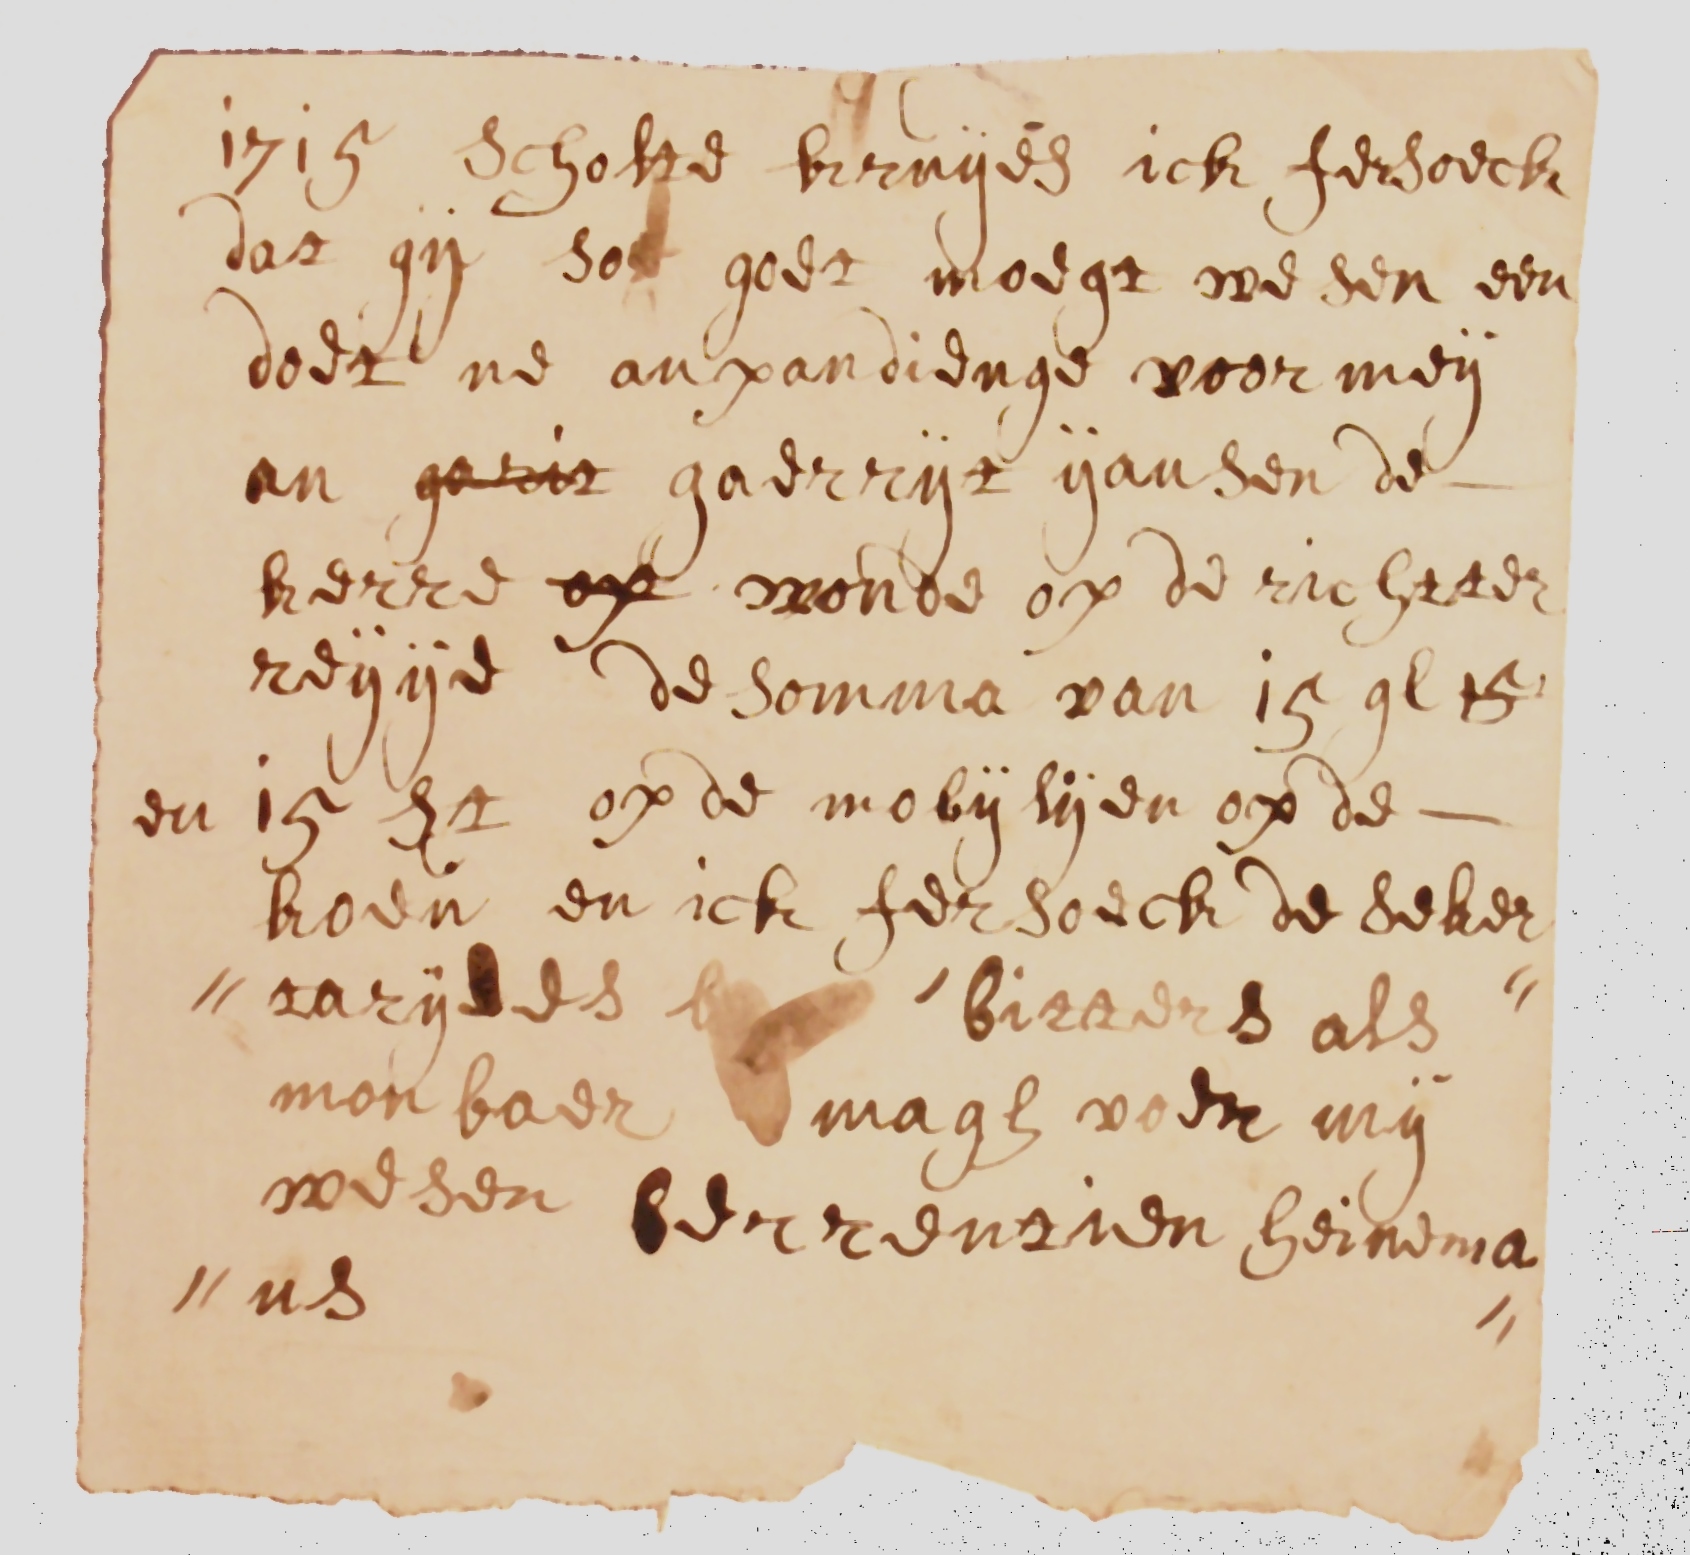 1715 scholte krruijes ick fersoeck
dat gij so godt moegt we sen een
doet ne anpandienge voor meij
an gerit gaerrijt ijansen de —
kerre op wonde op de richtter
reijije de somma van 15 gl 15
en 15 st op de mobijlijen op de —
koen en ick fersoeck de seker
" tarijes bitters als "
monbaer magh voer mij
wesen berrentien heinema
" ns "